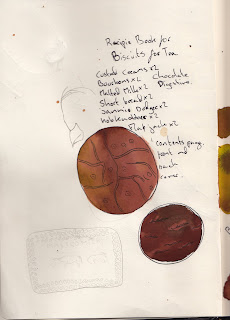 Recipie Book for
Biscuits for Tea
Custard creams x2
Bourbons x2 Chocolate
Malted Milk x2 Digestive.
Short bread x2
Jammie Dodger x2
hobknobbs x2
Flap jack x2
contents page,
front and
back
cover.